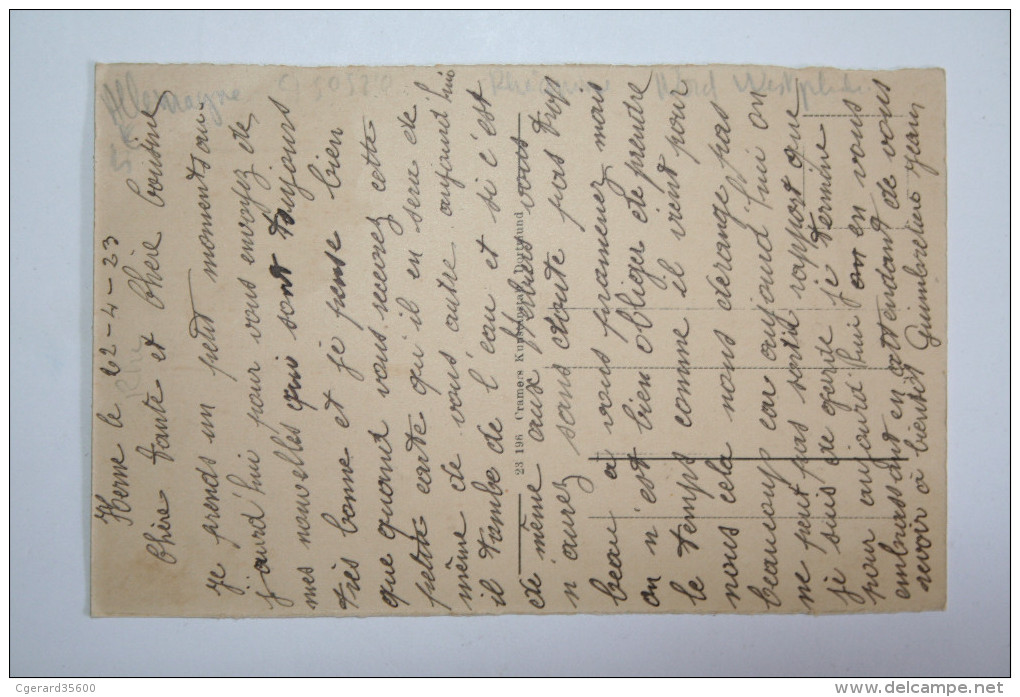 Herne le 22-4-23
Chère tante et Chère Cousine
je prends un petit moments au-
jourd'hui pour vous envoyez de
mes nouvelles qui sont toujours
très bonne et je pense bien
que quand vous recevrez cette
petite carte qu'il en sera de
même de vous autre aujourd'hui
il tombe de l'eau et si c'est
de même aux Moliers vous
n'aurez sans doute pas trop
beau a vous pramenez mais
on n'est bien obliger de prendre
le temps comme il vient pour
nous cela nous dérange pas
beaucoup car aujourd'hui on
ne peut pas sortir rapport que
je suis de garde je termine
pour aujourd'hui en vous
embrassant en attendant de vous
revoir à bientôt Guimbretière Jean
23 196 Cramers Kunstanstalt, Dortmund
Allemagne
5€
Rhénanie Nord Westphalie
Cgerard35600
www.delcampe.net